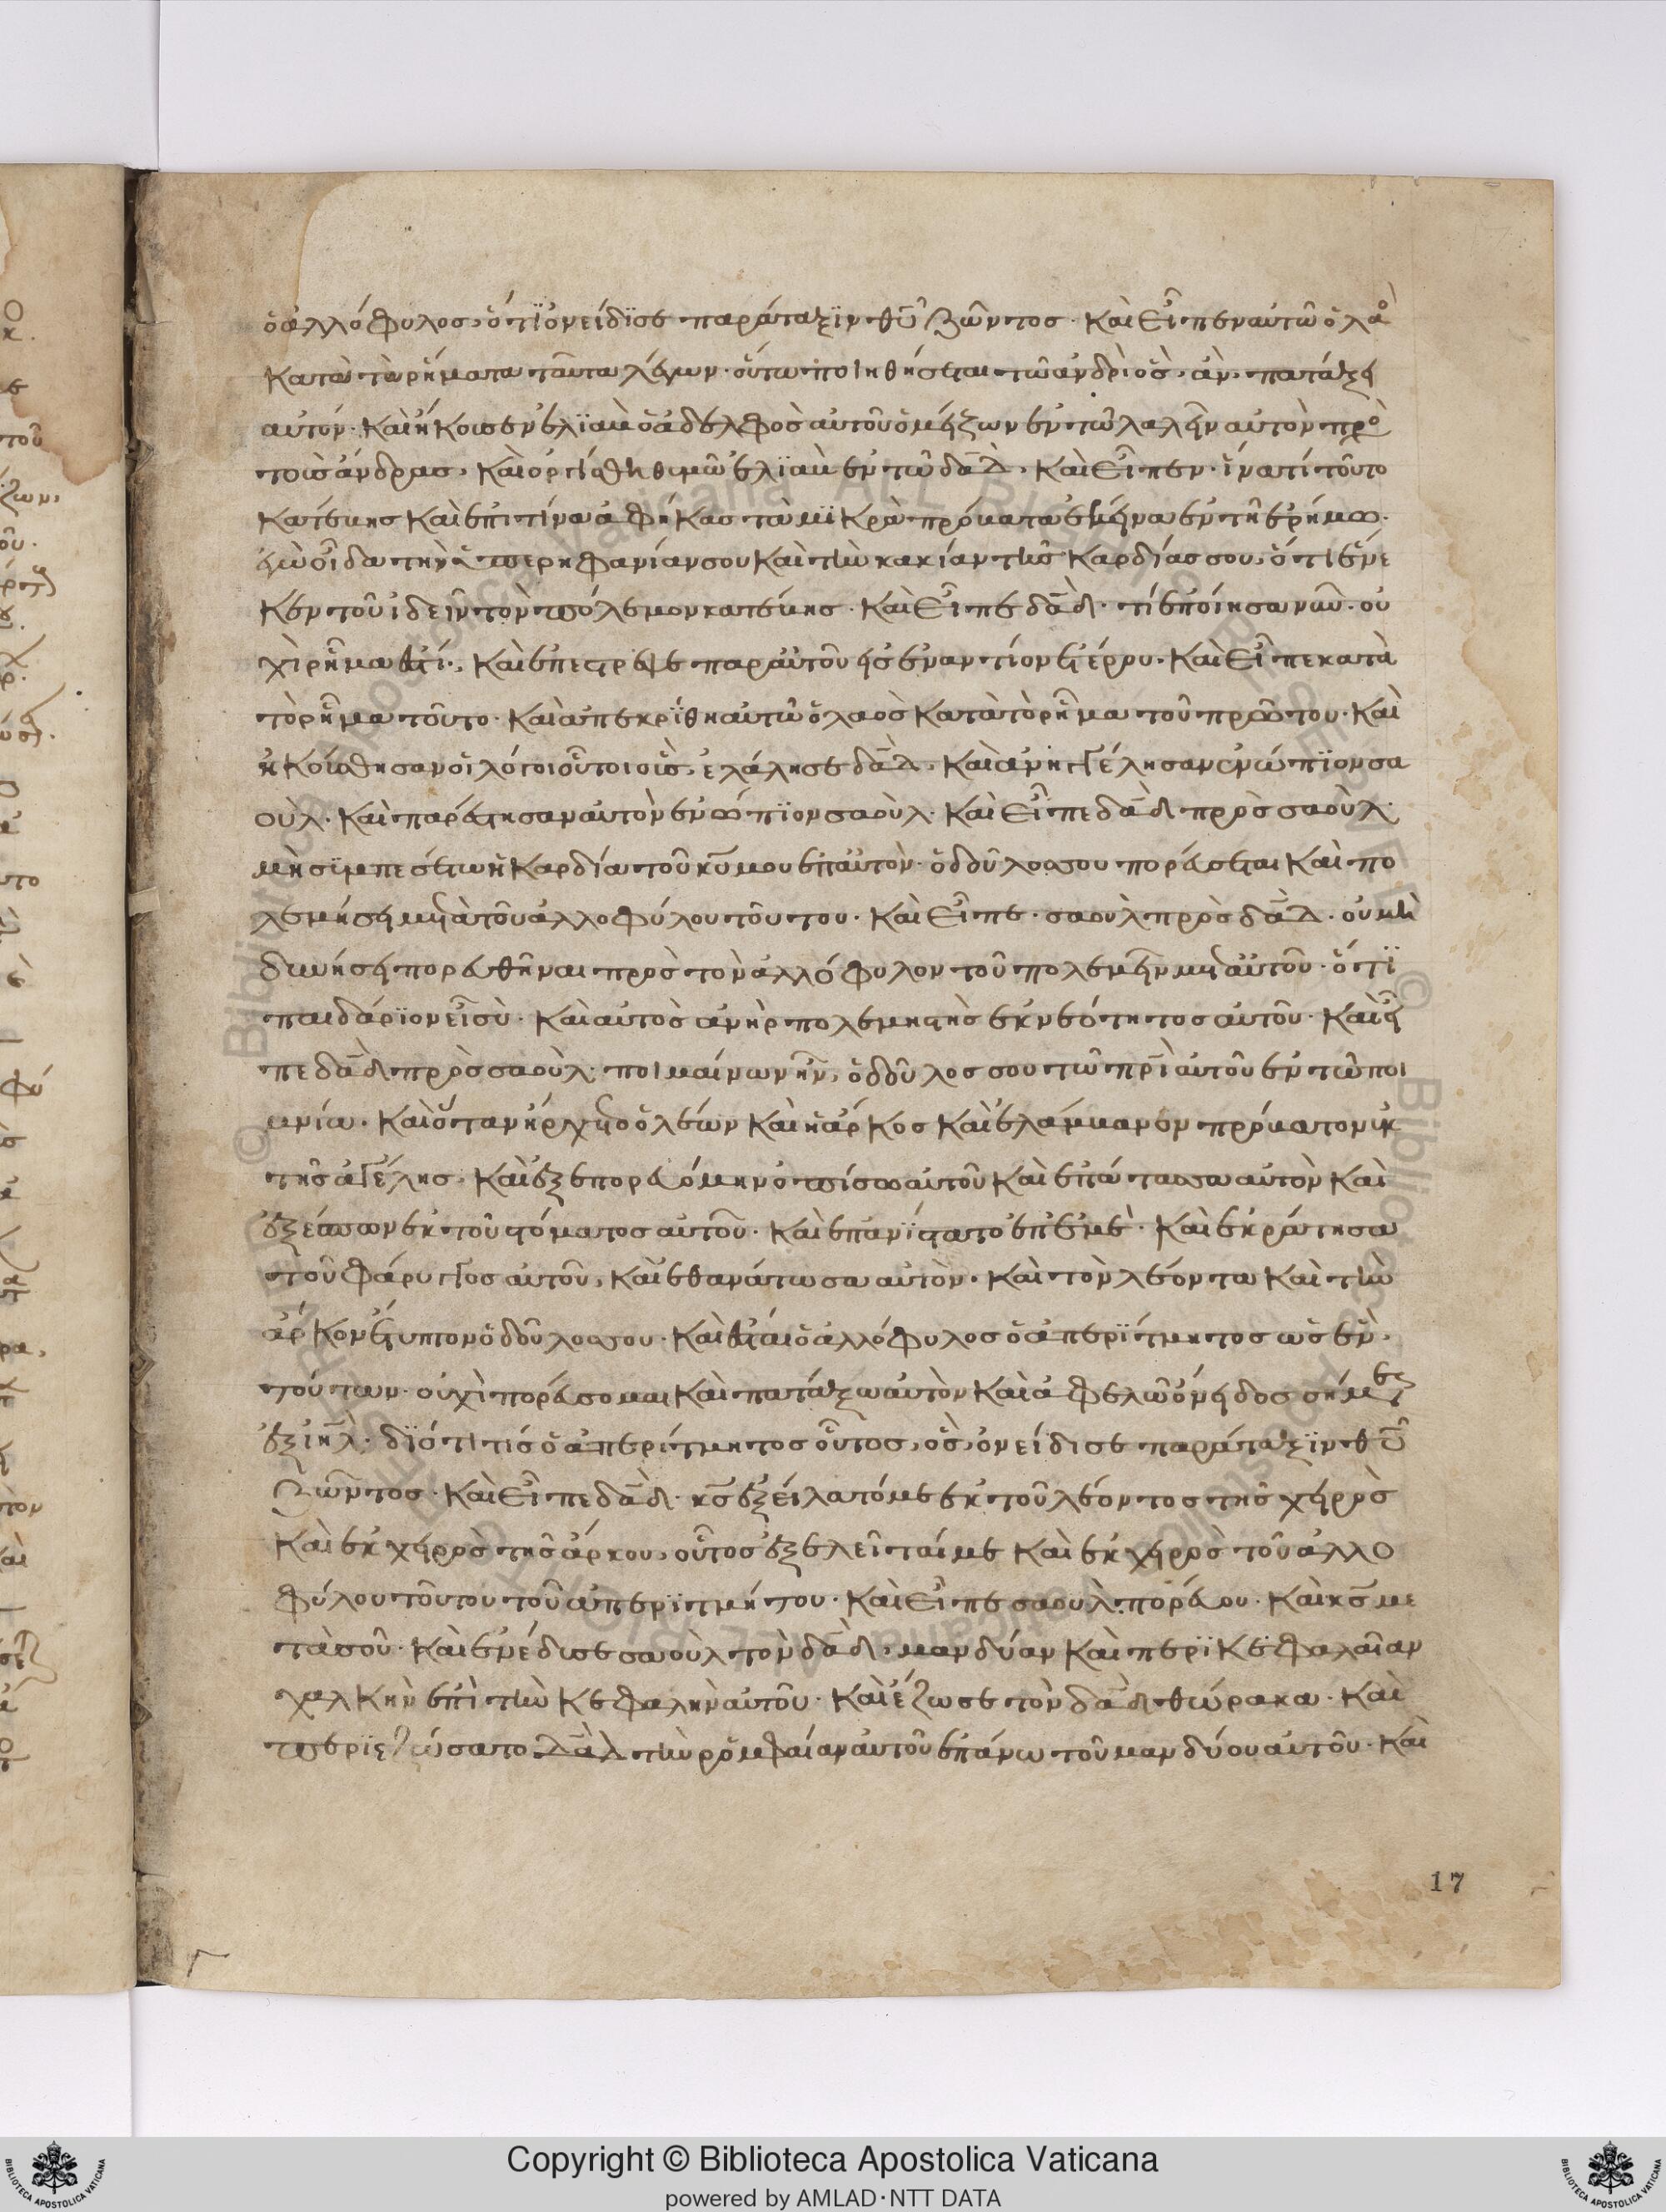 ὁ ἀλλόφυλος, ὅτι ὀνείδισε παράταξιν θῦ ζῶντος· καὶ εἶπεν αὐτῶ ὁ λαὸ
κατὰ τὰ ῥήματα ταῦτα λέγων· οὕτω ποιηθήσεται τῶ ἀνδρὶ ὃς ἂν πατάξη
αὐτόν· καὶ ἤκουσεν ἐλϊὰμ ὁ ἀδελφὸς αὐτοῦ ὁ μείζων ἐν τῶ λαλεῖν αὐτὸν πρὸ
τοὺς ἄνδρας, καὶ ὀργίσθη θυμῶ ἐλϊὰμ ἐν τῶ δᾱδ, καὶ εἶπεν· ἵνα τί τοῦτο
κατέβης καὶ ἐπὶ τίνα ἀφήκας τὰ μϊκρὰ πρόβατα ἐκεῖνα ἐν τῆ ἐρήμω·
ἐγὼ οἶδα τὴν ὑπερηφανίαν σου καὶ τὴν κακίαν τῆς καρδίας σου, ὅτι ἕνε
κεν τοῦ ἰδεῖν τὸν πόλεμον κατέβης· καὶ εἶπε δᾱδ· τί ἐποίησα νῦν· οὐ
χὶ ῥῆμα ἐστί· καὶ ἐπέστρεψε παρ αὐτοῦ εἰς ἐναντίον ἑτέρου· καὶ εἶπε κατὰ
τὸ ῥῆμα τοῦτο· καὶ ἀπεκρίθη αὐτῶ ὁ λαὸς κατὰ τὸ ῥῆμα τοῦ πρώτου· καὶ
ἠκούσθησαν οἱ λόγοι οὗτοι οὓς ἐλάλησε δᾱδ, καὶ ἀνηγγέλησαν ἐνώπϊον σα
οὺλ· καὶ παρέστησαν αὐτὸν ἐνώπϊον σαοὺλ· καὶ εἶπε δᾱδ πρὸς σαοὺλ·
μὴ συμπεσέτω ἡ καρδία τοῦ κῡ μου ἐπ αὐτὸν· ὁ δοῦλος σου πορεύσεται καὶ πο
λεμήσει μετὰ τοῦ ἀλλοφύλου τούτου· καὶ εἶπε· σαοὺλ πρὸς δᾱδ· οὐ μὴ
δυνήση πορευθῆναι πρὸς τὸν ἀλλόφυλον τοῦ πολεμεῖν μετ αὐτοῦ· ὅτϊ
παιδάρϊον εἶ σὺ· καὶ αὐτὸς ἀνὴρ πολεμηστὴς ἐκ νεότητος αὐτοῦ· καὶ εἶ
πε δᾱδ πρὸς σαοὺλ· ποιμαίνων ἦν, ὁ δοῦλος σου τῶ πρῑ αὐτοῦ ἐν τῶ ποι
μνίω· καὶ ὅταν ἤρχετο ὁ λέων καὶ ἡ ἄρκος καὶ ἐλάμβανεν πρόβατον ἐκ
τῆς ἀγέλης· καὶ ἐξεπορευόμην ὀπίσω αὐτοῦ καὶ ἐπάταξα αὐτὸν καὶ
ἐξέσπων ἐκ τοῦ στόματος αὐτοῦ· καὶ ἐπανίστατο ἐπ ἐμὲ· καὶ ἐκράτησα
τοῦ φάρυγγος αὐτοῦ, καὶ ἐθανάτωσα αὐτὸν· καὶ τὸν λέοντα καὶ τὴν
ἄρκον ἔτυπτον ὁ δοῦλος σου· καὶ ἔσται ὁ ἀλλόφυλος ὁ ἀπερίτμητος ὡς ἓν
τούτων· οὐχὶ πορεύσομαι καὶ πατάξω αὐτὸν καὶ ἀφελῶ ὄνειδος σήμε
ἐξ ιη̄λ· διότι τίς ὁ ἀπερίτμητος οὗτος, ὃς ὀνείδισε παράταξϊν θῦ
ζῶντος· καὶ εἶπε δᾱδ· κ̄ς ἐξείλατό με ἐκ τοῦ λέοντος τῆς χειρὸς
καὶ ἐκ χειρὸς τῆς ἄρκου, οὗτος ἐξελεῖται με καὶ ἐκ χειρὸς τοῦ ἀλλο
φύλου τούτου τοῦ ἀπερϊτμήτου· καὶ εἶπε σαοὺλ· πορεύου· καὶ κ̄ς με
τὰ σοῦ· καὶ ἐνέδυσε σαοὺλ τὸν δᾱδ, μανδύαν καὶ περϊκεφαλαῖαν
χαλκὴν ἐπὶ τὴν κεφαλὴν αὐτοῦ· καὶ ἔζωσε τὸν δᾱδ θώρακα· καὶ
περϊεζώσατο δᾱδ τὴν ῥομφαίαν αὐτοῦ ἐπάνω τοῦ μανδύου αὐτοῦ· καὶ
17
Copyright © Biblioteca Apostolica Vaticana
powered by AMLAD·NTT DATA